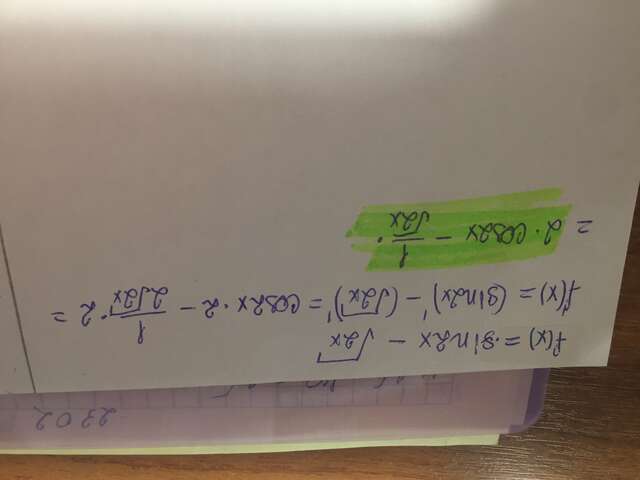 f(x) = sin2x - √2x
f'(x) = (sin2x)' - (√2x)' = cos2x · 2 - 1/2√2x · 2 =
= 2 · cos2x - 1/√2x .
2302